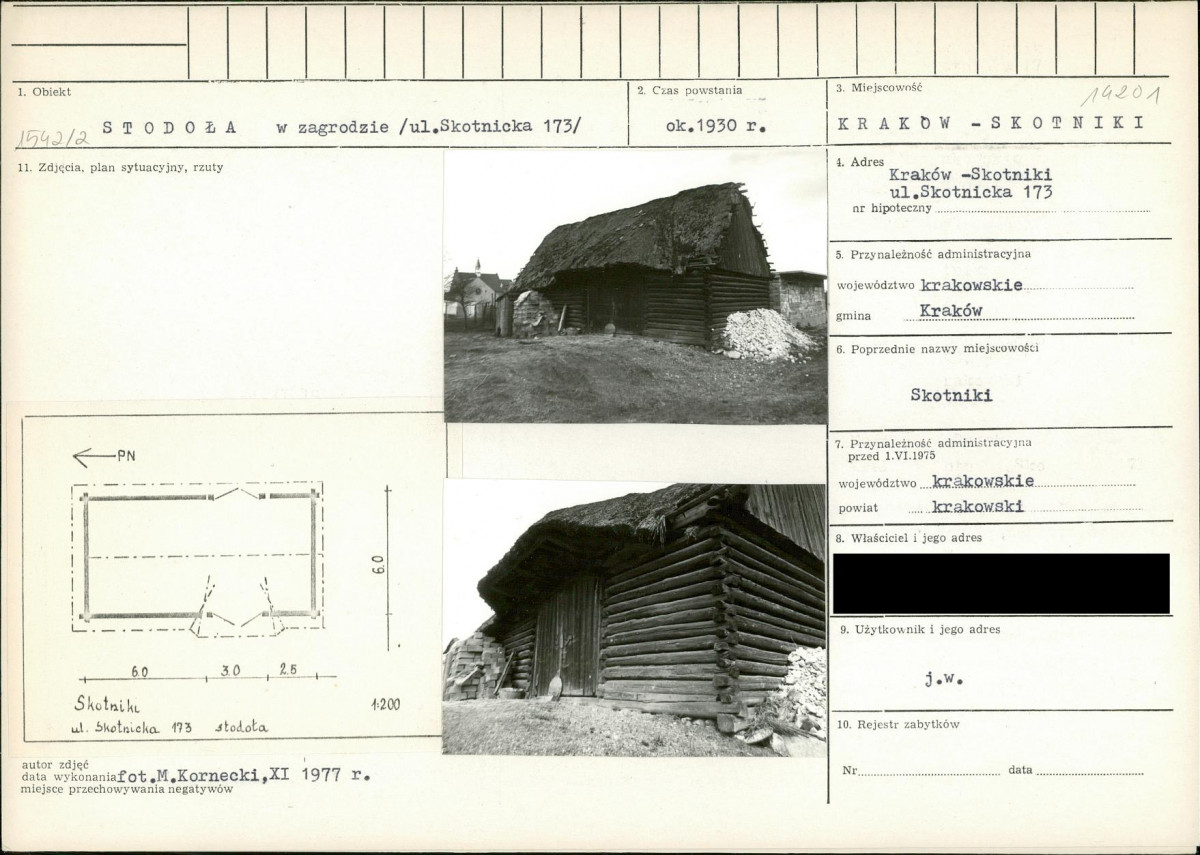 1. Obiekt
1542/2
STODOŁA w zagrodzie /ul.Skotnicka 173/
2. Czas powstania
ok.1930 r.
3. Miejscowość
14201
KRAKÓW - SKOTNIKI
11. Zdjęcia, plan sytuacyjny, rzuty
PN
6.0
6.0 3.0 2.5
Skotniki 1:200
ul. Skotnicka 173 stodoła
autor zdjęć
data wykonania fot.M.Kornecki,XI 1977 r.
miejsce przechowywania negatywów
4. Adres
Kraków -Skotniki
ul.Skotnicka 173
nr hipoteczny
5. Przynależność administracyjna
województwo krakowskie
gmina Kraków
6. Poprzednie nazwy miejscowości
Skotniki
7. Przynależność administracyjna
przed 1.VI.1975
województwo krakowskie
powiat krakowski
8. Właściciel i jego adres
9. Użytkownik i jego adres
j.w.
10. Rejestr zabytków
Nr data